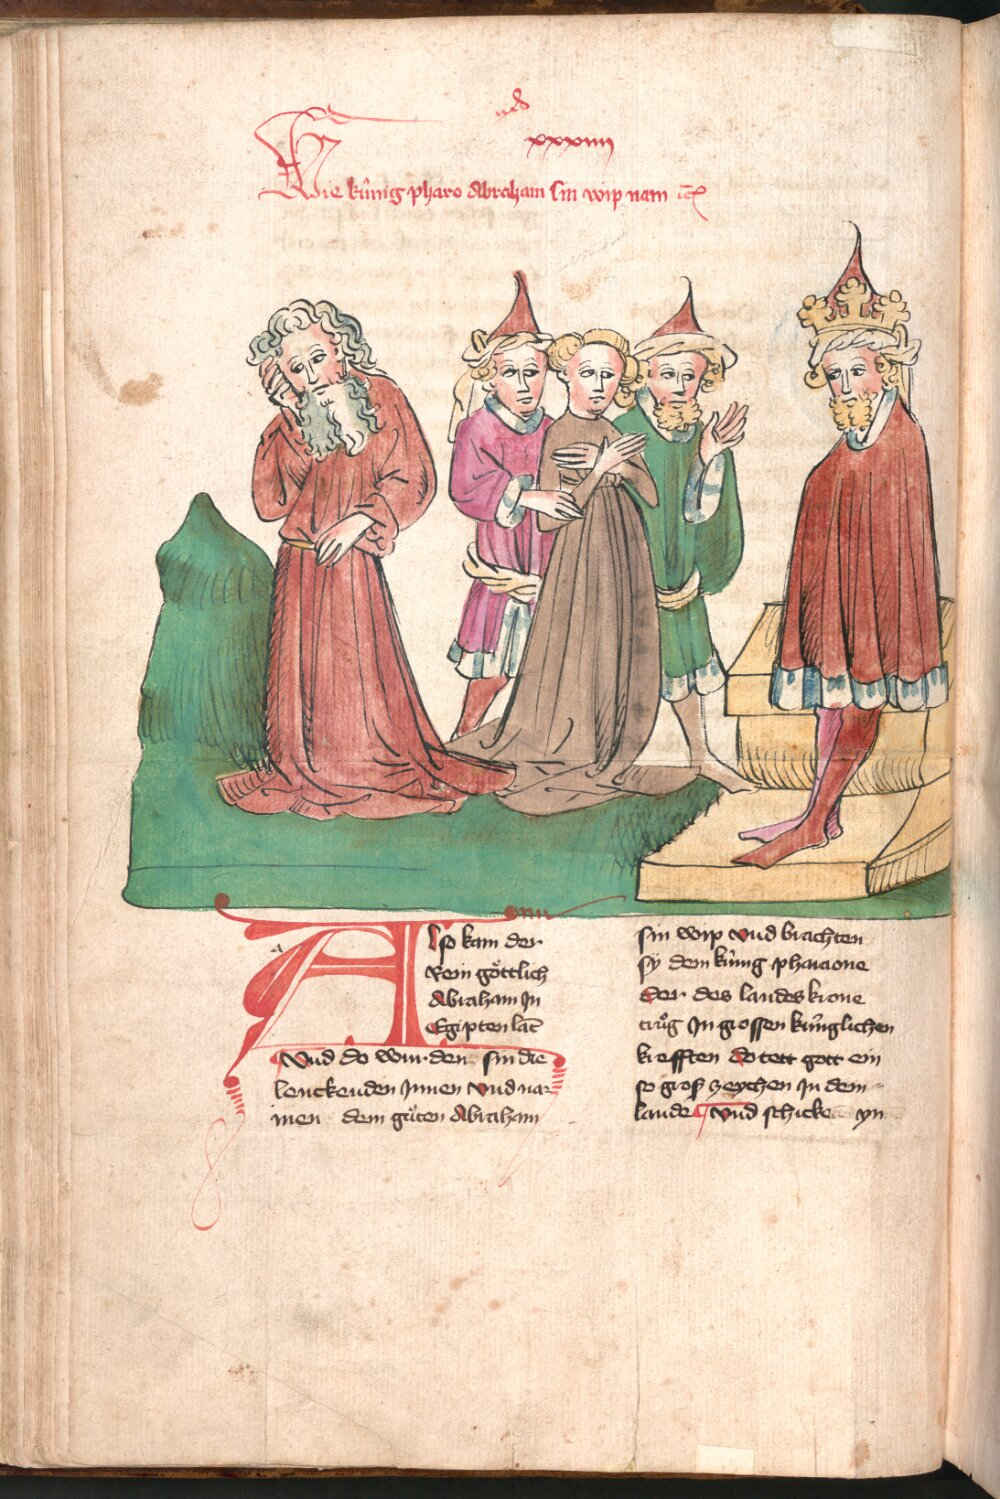 xxxiiii
Wie kűnig pharo Abraham sin wip nam
Also kam der
Rein göttlich
Abraham Jn
Egipten lāt
Vnd do wurden sin die
lenckenden Jnnen Vnd nar
men dem gůten Abraham
sin wip vnd brachten
sÿ dem kűnig pharaone
Der des landes krone
trůg Jn grossen kűnglichen
krefften do tett gott ein
so groß zeychen Jn dem
lande Vnd schicke yn